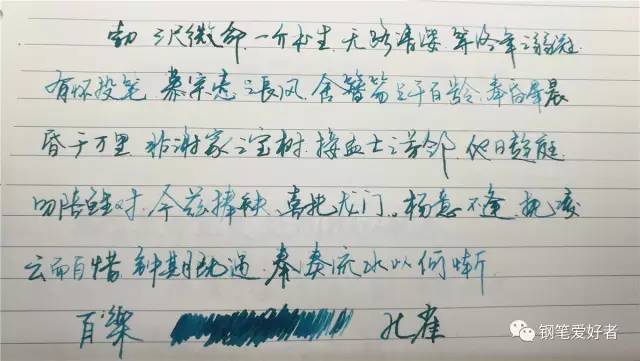 勃 三尺微命 一介书生 无路请缨 等终军之弱冠
有怀投笔 慕宗悫之长风 舍簪笏于百龄 奉昏奉晨
昏于万里 非谢家之宝树 接孟士之芳邻 他日趋庭
叨陪鲤对 今兹捧袂 喜托龙门。杨意不逢 抚凌
云而自惜 钟期既遇 奉奏流水以何惭
百樂 孔雀
钢笔爱好者